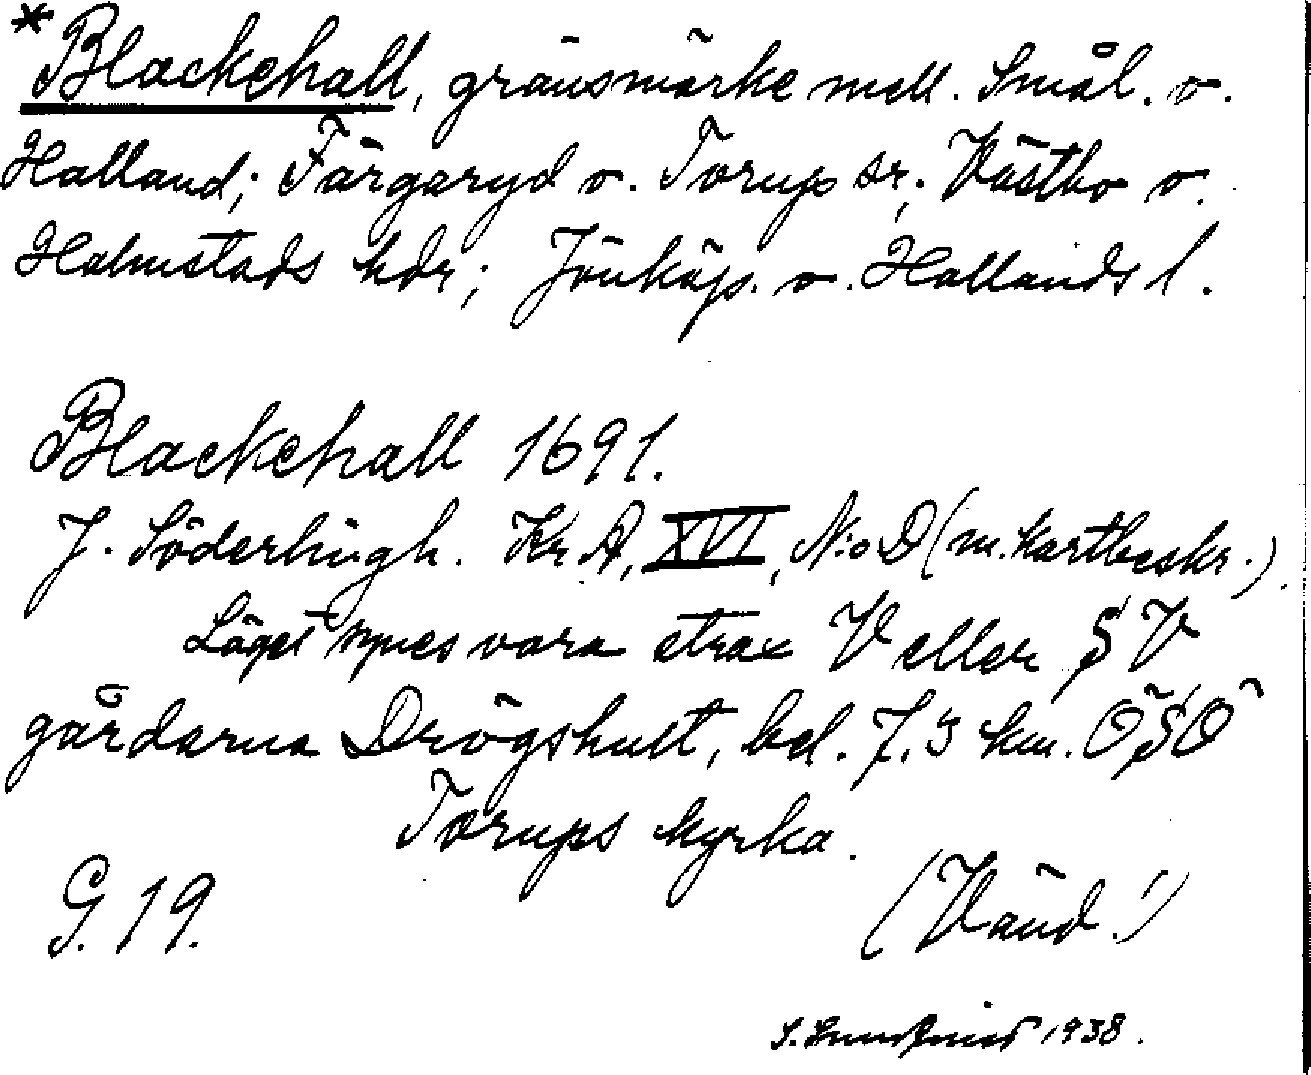 *Blackehall, gränsmärke mell. Smål. o.
Halland; Färgaryd o. Torups sr, Västbo o.
Halmstads hdr; Jönköp. o. Hallands l.
Blackehall 1691.
J. Söderlingh. Kr A, XVI, N:o D (m. kartbeskr.).
Läget synes vara strax V eller SV
gårdarna Drögshult, bel. 7,3 km. ÖSÖ
Torups kyrka.
G. 19.
(Vänd!)
S. 1938.